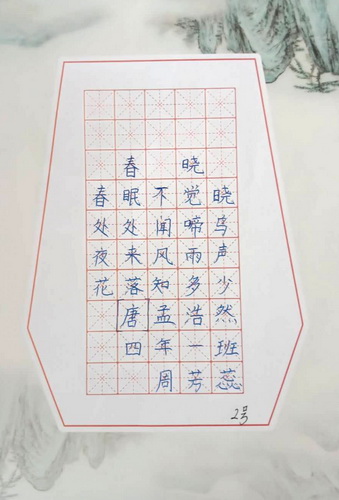 春晓
春眠不觉晓
处处闻啼鸟
夜来风雨声
花落知多少
唐孟浩然
四年一班
周芳蕊
2号